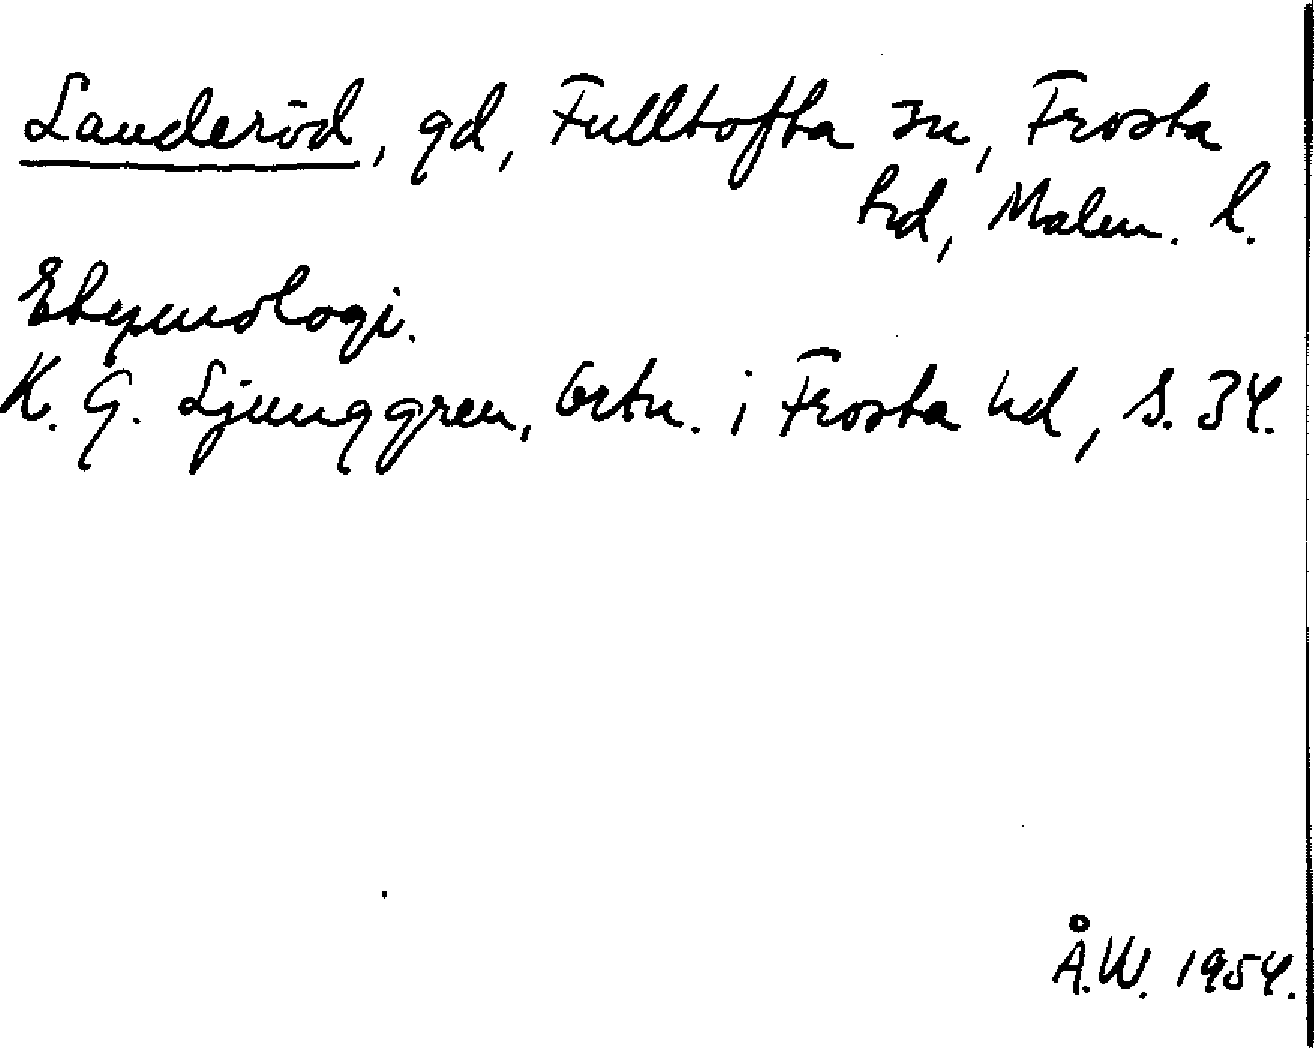 Landeröd, gd, Fulltofta sn, Frosta
hd, Malm. l.
Etymologi.
K. G. Ljunggren, Ortn. i Frosta hd, S. 34.
Å.W. 1954.